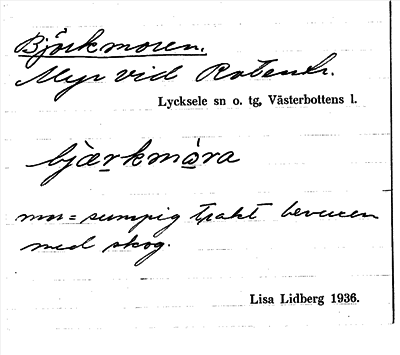 Björkmoren.
Myr vid Rotentr.
Lycksele sn o. tg, Västerbottens l.
bjærkmåra
mor = sumpig trakt beveven
med skog.
Lisa Lidberg 1936.